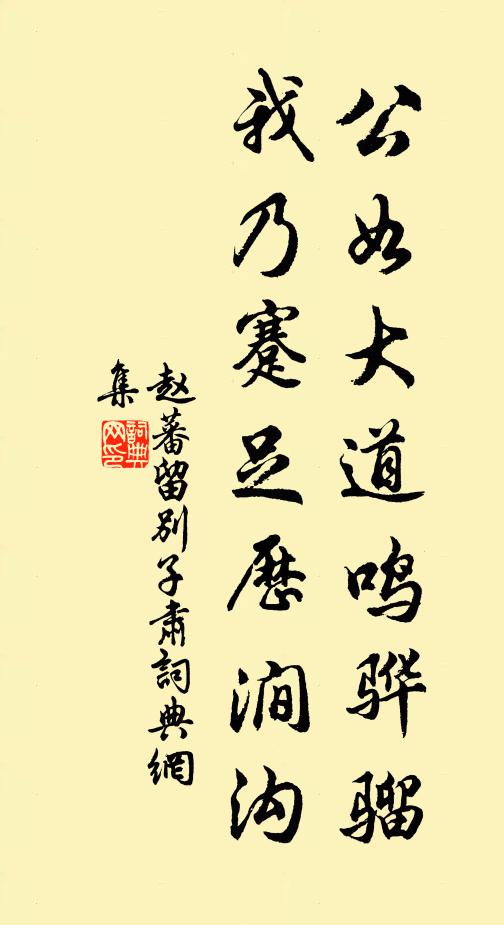 公如大道鸣骅骝
我乃蹇足历涧沟
赵蕃留别子肃詞典網
集
詞典
网印